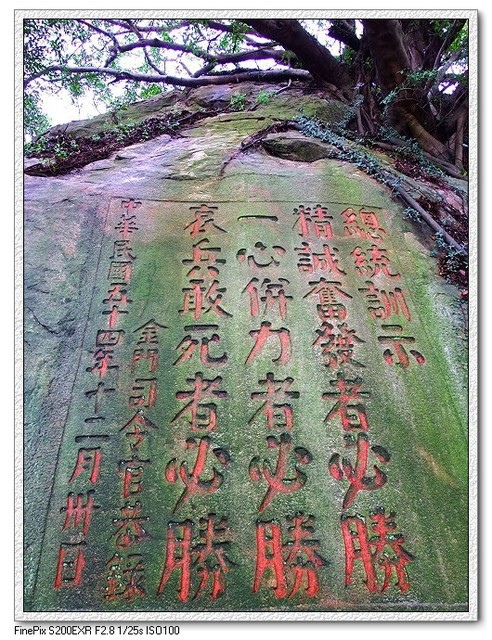 總統訓示
精誠奮發者必勝
一心併力者必勝
哀兵敢死者必勝
金門司令官恭錄
中華民國五十四年十二月卅日
FinePix S200EXR F2.8 1/25s ISO100